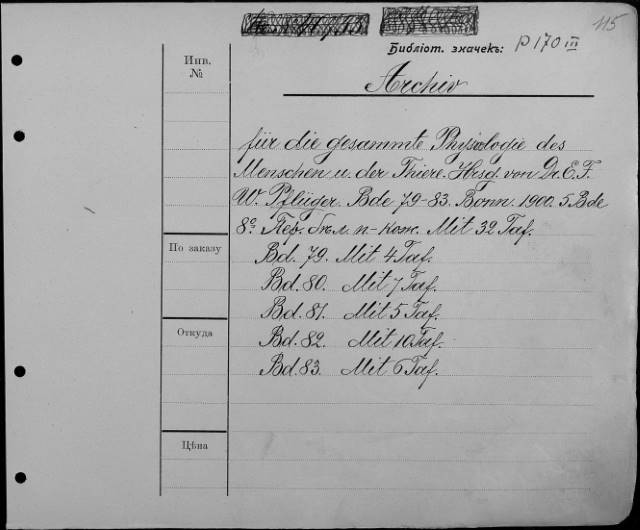 115
Библіот. значекъ: P 170 III
Инв. №
Archiv
für die gesammte Physiologie des
Menschen u. der Thiere. Hrsg. von Dr. E. F.
W. Pflüger. Bde 79-83. Bonn. 1900. 5 Bde
8º Пер. бѣл. п.-кож. Mit 32 Taf.
По заказу
Bd. 79. Mit 4 Taf.
Bd. 80. Mit 7 Taf.
Bd. 81. Mit 5 Taf.
Откуда
Bd. 82. Mit 10 Taf.
Bd. 83. Mit 6 Taf.
Цѣна